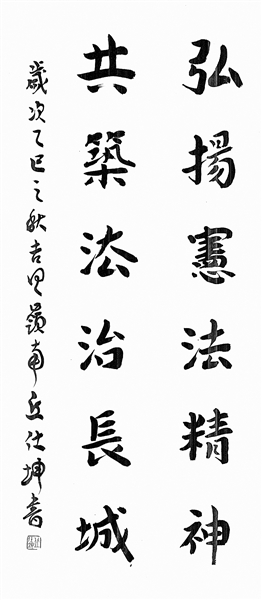 弘揚憲法精神
共築法治長城
歲次乙巳之秋吉旦嶺南丘仕坤書